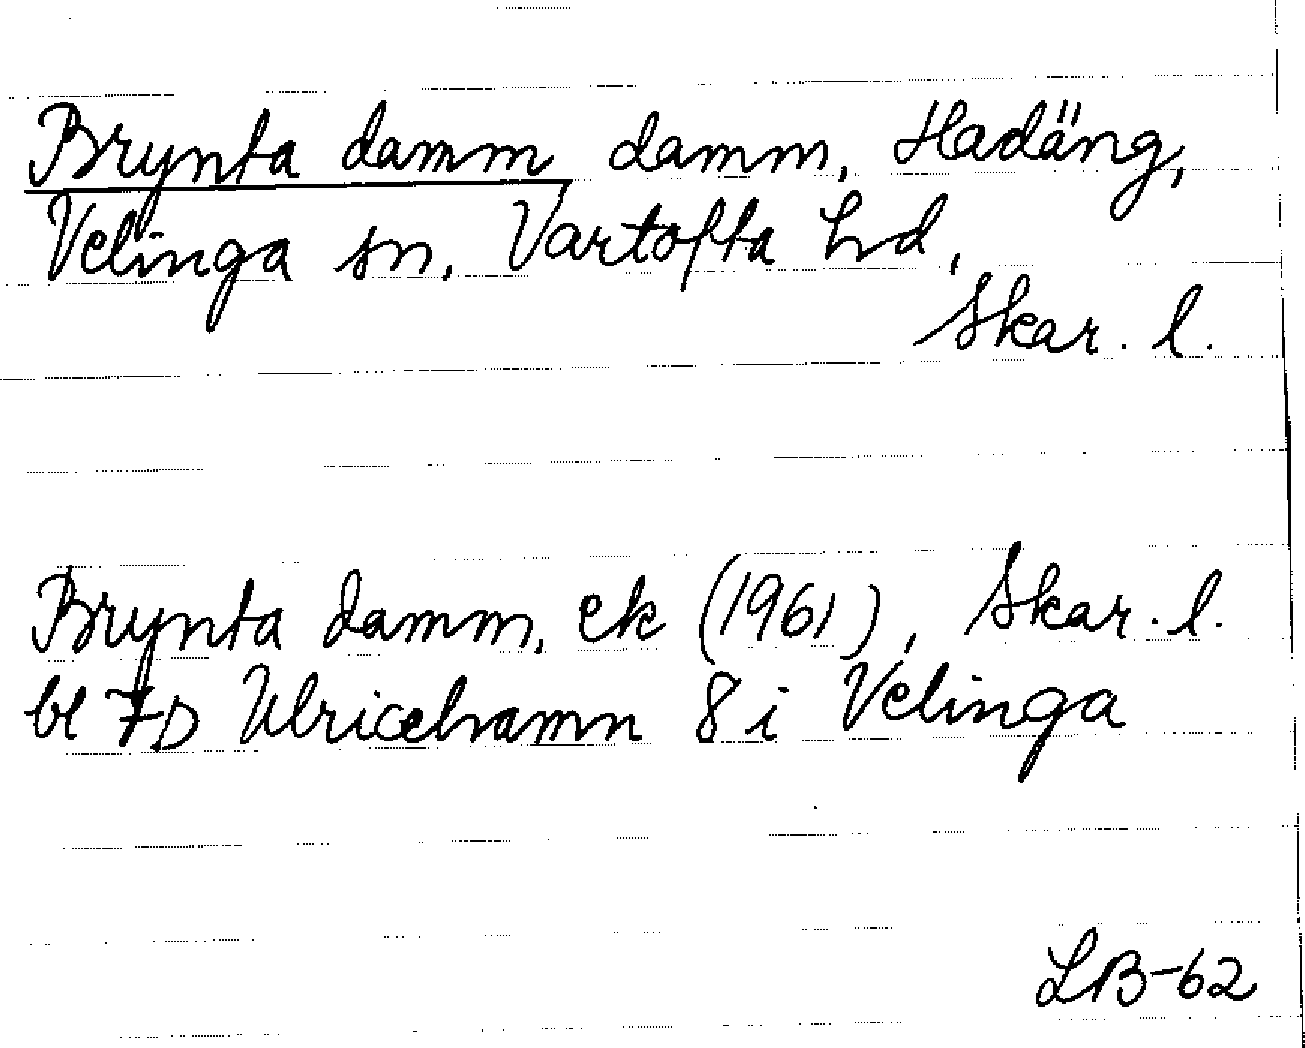 Brynta damm damm, Hadäng,
Velinga sn, Vartofta hd,
Skar. l.
Brynta damm, ek (1961), Skar. l.
bl 7D Ulricehamn 8 i Velinga
LB-62